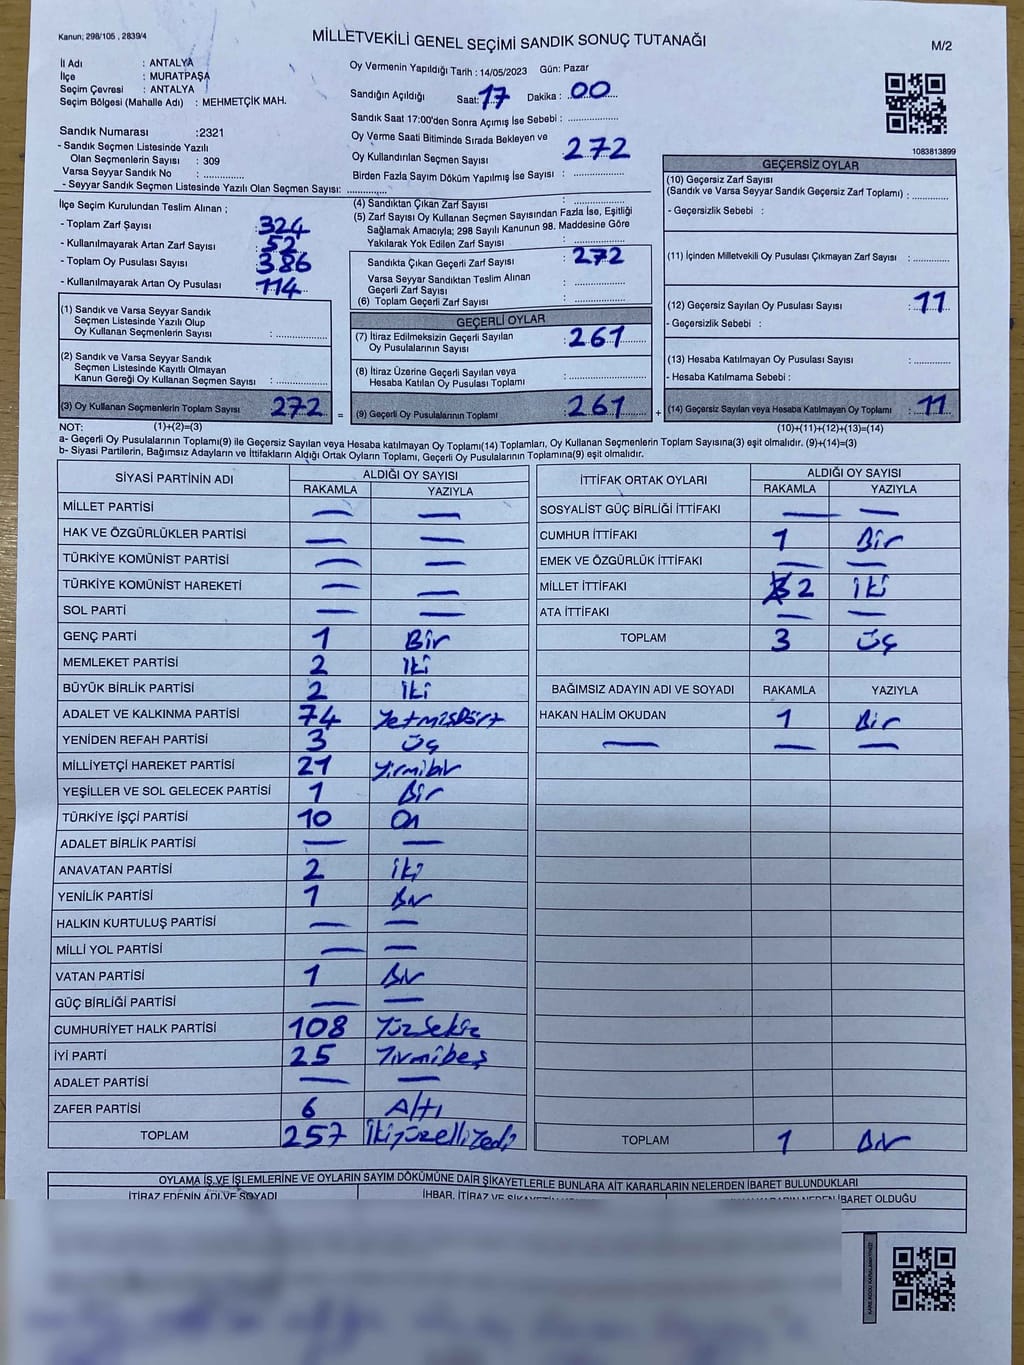 Kanun; 298/105 , 2839/4
MİLLETVEKİLİ GENEL SEÇİMİ SANDIK SONUÇ TUTANAĞI
M/2
İl Adı : ANTALYA
İlçe : MURATPAŞA
Seçim Çevresi : ANTALYA
Seçim Bölgesi (Mahalle Adı) : MEHMETÇİK MAH.
Sandık Numarası :2321
- Sandık Seçmen Listesinde Yazılı
Olan Seçmenlerin Sayısı : 309
Varsa Seyyar Sandık No : ................
- Seyyar Sandık Seçmen Listesinde Yazılı Olan Seçmen Sayısı: ............
Oy Vermenin Yapıldığı Tarih : 14/05/2023 Gün: Pazar
Sandığın Açıldığı Saat: 17 Dakika : 00
Sandık Saat 17:00'den Sonra Açımış İse Sebebi : ..............
Oy Verme Saati Bitiminde Sırada Bekleyen ve
Oy Kullandırılan Seçmen Sayısı : 272
Birden Fazla Sayım Döküm Yapılmış İse Sayısı : ..............
1083813899
İlçe Seçim Kurulundan Teslim Alınan ;
- Toplam Zarf Sayısı : 324
- Kullanılmayarak Artan Zarf Sayısı : 52
- Toplam Oy Pusulası Sayısı : 386
- Kullanılmayarak Artan Oy Pusulası : 114
(1) Sandık ve Varsa Seyyar Sandık
Seçmen Listesinde Yazılı Olup
Oy Kullanan Seçmenlerin Sayısı : ..............
(2) Sandık ve Varsa Seyyar Sandık
Seçmen Listesinde Kayıtlı Olmayan
Kanun Gereği Oy Kullanan Seçmen Sayısı : ..............
(3) Oy Kullanan Seçmenlerin Toplam Sayısı : 272
(4) Sandıktan Çıkan Zarf Sayısı : ..............
(5) Zarf Sayısı Oy Kullanan Seçmen Sayısından Fazla İse, Eşitliği
Sağlamak Amacıyla; 298 Sayılı Kanunun 98. Maddesine Göre
Yakılarak Yok Edilen Zarf Sayısı : ..............
Sandıkta Çıkan Geçerli Zarf Sayısı : 272
Varsa Seyyar Sandıktan Teslim Alınan
Geçerli Zarf Sayısı : ..............
(6) Toplam Geçerli Zarf Sayısı : ..............
GEÇERLİ OYLAR
(7) İtiraz Edilmeksizin Geçerli Sayılan
Oy Pusulalarının Sayısı : 261
(8) İtiraz Üzerine Geçerli Sayılan veya
Hesaba Katılan Oy Pusulası Toplamı : ..............
= (9) Geçerli Oy Pusulalarının Toplamı : 261
GEÇERSİZ OYLAR
(10) Geçersiz Zarf Sayısı
(Sandık ve Varsa Seyyar Sandık Geçersiz Zarf Toplamı) : ............
- Geçersizlik Sebebi :
(11) İçinden Milletvekili Oy Pusulası Çıkmayan Zarf Sayısı : ............
(12) Geçersiz Sayılan Oy Pusulası Sayısı : 11
- Geçersizlik Sebebi :
(13) Hesaba Katılmayan Oy Pusulası Sayısı : ............
- Hesaba Katılmama Sebebi :
+ (14) Geçersiz Sayılan veya Hesaba Katılmayan Oy Toplamı : 11
NOT: (1)+(2)=(3)
(10)+(11)+(12)+(13)=(14)
a- Geçerli Oy Pusulalarının Toplamı(9) ile Geçersiz Sayılan veya Hesaba katılmayan Oy Toplamı(14) Toplamları, Oy Kullanan Seçmenlerin Toplam Sayısına(3) eşit olmalıdır. (9)+(14)=(3)
b- Siyasi Partilerin, Bağımsız Adayların ve İttifakların Aldığı Ortak Oyların Toplamı, Geçerli Oy Pusulalarının Toplamına(9) eşit olmalıdır.
SİYASİ PARTİNİN ADI ALDIĞI OY SAYISI
RAKAMLA YAZIYLA
MİLLET PARTİSI — —
HAK VE ÖZGÜRLÜKLER PARTİSİ — —
TÜRKİYE KOMÜNİST PARTİSI — —
TÜRKİYE KOMÜNİST HAREKETİ — —
SOL PARTİ — —
GENÇ PARTİ 1 Bir
MEMLEKET PARTİSİ 2 iki
BÜYÜK BİRLİK PARTİSİ 2 iki
ADALET VE KALKINMA PARTİSİ 74 YetmişDört
YENİDEN REFAH PARTİSİ 3 üç
MİLLİYETÇİ HAREKET PARTİSİ 21 Yirmibir
YEŞİLLER VE SOL GELECEK PARTİSİ 1 Bir
TÜRKİYE İŞÇİ PARTİSİ 10 On
ADALET BİRLİK PARTİSİ — —
ANAVATAN PARTİSİ 2 iki
YENİLİK PARTİSİ 1 Bir
HALKIN KURTULUŞ PARTİSİ — —
MİLLİ YOL PARTİSİ — —
VATAN PARTİSİ 1 Bir
GÜÇ BİRLİĞİ PARTİSİ — —
CUMHURİYET HALK PARTİSİ 108 Yüzsekiz
İYİ PARTİ 25 Yirmibeş
ADALET PARTİSİ — —
ZAFER PARTİSİ 6 Altı
TOPLAM 257 İkiyüzelliYedi
İTTİFAK ORTAK OYLARI ALDIĞI OY SAYISI
RAKAMLA YAZIYLA
SOSYALİST GÜÇ BİRLİĞİ İTTİFAKI — —
CUMHUR İTTİFAKI 1 Bir
EMEK VE ÖZGÜRLÜK İTTİFAKI — —
MİLLET İTTİFAKI 2 iki
ATA İTTİFAKI — —
TOPLAM 3 üç
BAĞIMSIZ ADAYIN ADI VE SOYADI RAKAMLA YAZIYLA
HAKAN HALİM OKUDAN 1 Bir
— — —
TOPLAM 1 Bir
OYLAMA İŞ VE İŞLEMLERİNE VE OYLARIN SAYIM DÖKÜMÜNE DAİR ŞİKAYETLERLE BUNLARA AİT KARARLARIN NELERDEN İBARET BULUNDUKLARI
İTİRAZ EDENİN ADI VE SOYADI İHBAR, İTİRAZ VE NEDEN İBARET OLDUĞU